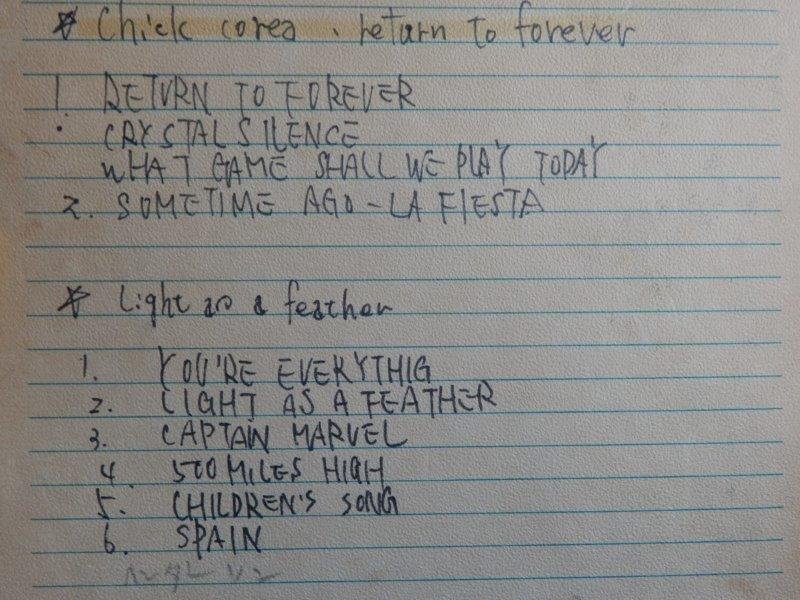 ☆ Chick corea . return to forever
1. RETURN TO FOREVER
CRYSTAL SILENCE
WHAT GAME SHALL WE PLAY TODAY
2. SOMETIME AGO - LA FIESTA
☆ Light as a feather
1. YOU'RE EVERYTHIG
2. LIGHT AS A FEATHER
3. CAPTAIN MARVEL
4 500 MILES HIGH
5. CHILDREN'S SONG
6. SPAIN